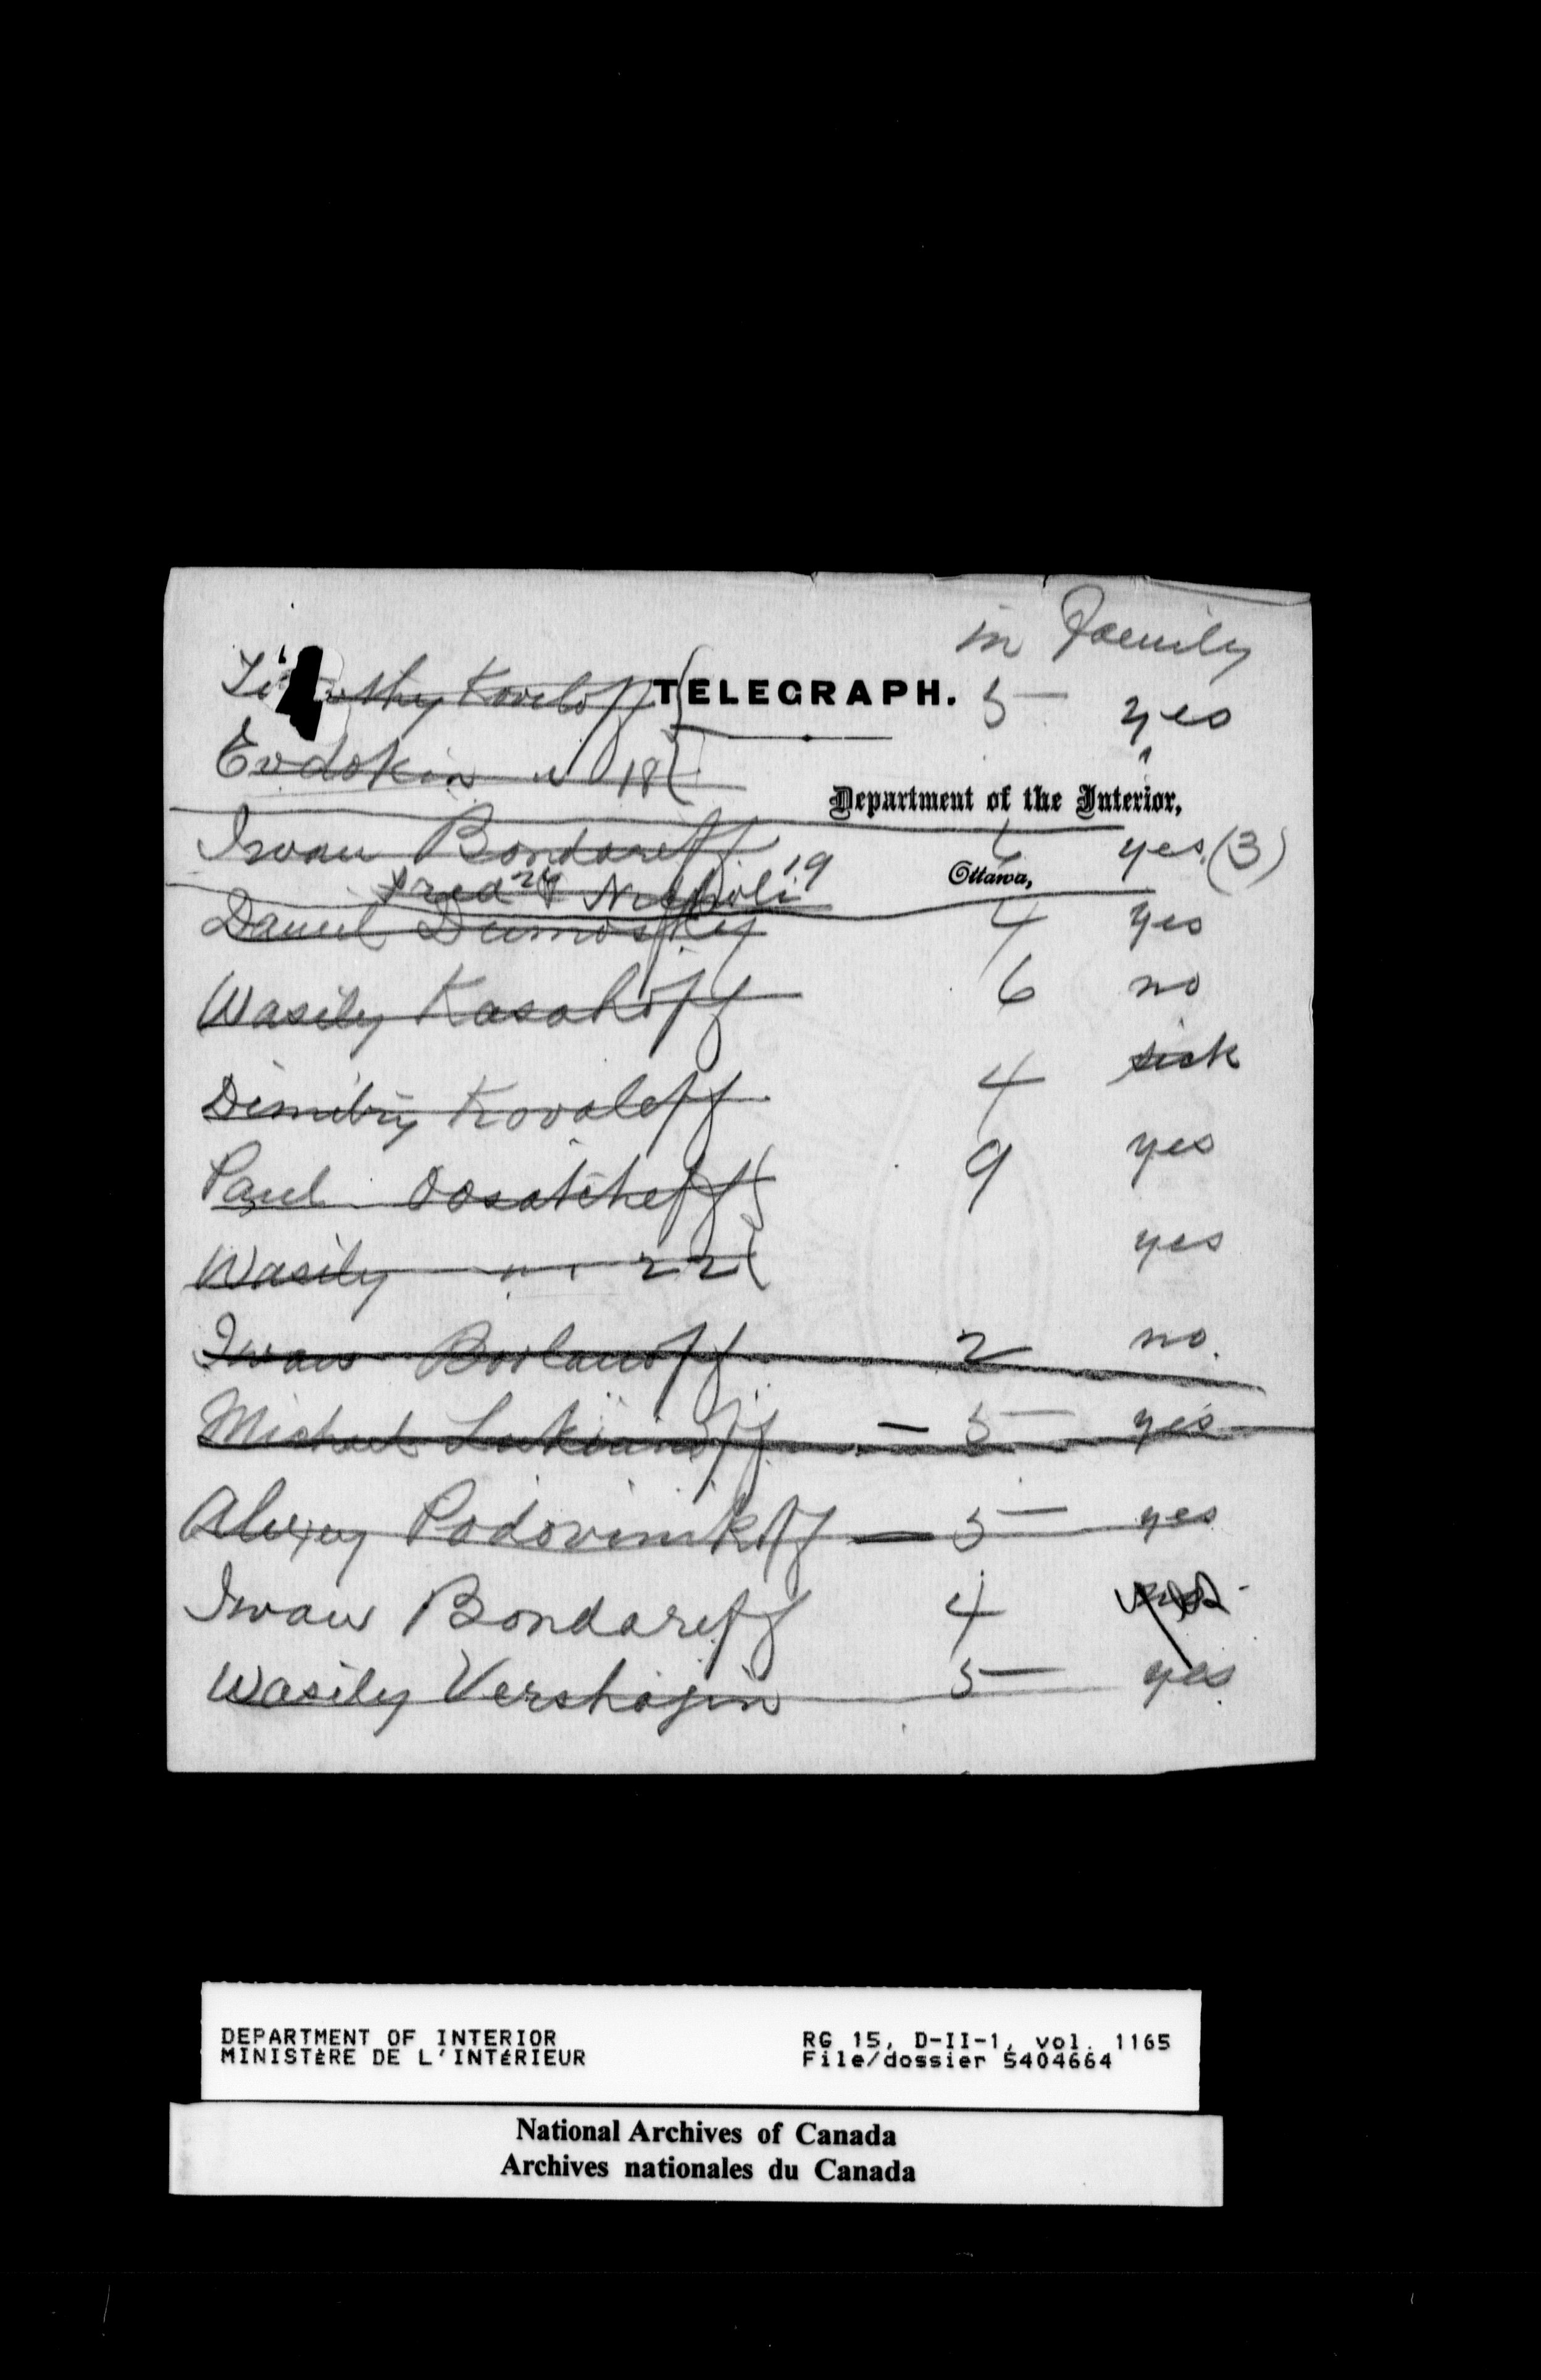 in Family
TELEGRAPH. 5 yes
Evdokin " 18
Department of the Interior,
Iwan Bondareff 6 yes (3)
Fred 24 Nicholi 19
Ottawa,
Daniel 4 yes
Wasily Kasakoff 6 no
Dimitry Kovaleff 4 sick
Paul Oosatcheff 9 yes
Wasily " 22 yes
Iwan 2 no.
Michael Lukianoff - 5 yes
Alexey Podovinikoff - 5 yes
Iwan Bondareff 4
Wasily Vershagin 5 yes
DEPARTMENT OF INTERIOR RG 15, D-II-1, vol. 1165
MINISTÈRE DE L'INTÉRIEUR File/dossier 5404664
National Archives of Canada
Archives nationales du Canada